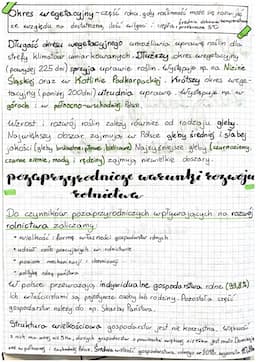 Okres wegetacyjny - część roku, gdy roślinność może się rozwijać
ze względu na dostateczną ilość wilgoci i ciepła
Długość okresu wegetacyjnego umożliwia uprawę roślin dla
strefy klimatów umiarkowanych. Dłuższy okres wegetacyjny
(powyżej 225 dni) sprzyja uprawie roślin. Występuje np. na Nizinie
Śląskiej oraz w Kotlinie Podkarpackiej. Krótszy okres wege-
tacyjny (poniżej 200 dni) utrudnia uprawę. Występuje np. w
górach i w północno-wschodniej Polsce.
Wzrost i rozwój roślin zależy również od rodzaju gleby.
Największy obszar zajmują w Polsce gleby średniej i słabej
jakości (gleby brunatne, płowe, bielicowe). Najżyźniejsze gleby (czarnoziemy,
czarne ziemie, mady i rędziny) zajmują niewielkie obszary.
pozaprzyrodnicze warunki rozwoju
rolnictwa
Do czynników pozaprzyrodniczych wpływających na rozwój
rolnictwa zaliczamy:
• wielkość i formę własności gospodarstw rolnych
• udział osób pracujących w rolnictwie
• poziom mechanizacji i chemizacji
• politykę rolną państwa
W polsce przeważają indywidualne gospodarstwa rolne (99,8%)
Ich właścicielami są pojedyncze osoby lub rodziny. Pozostała część
gospodarstw należy do np. Skarbu Państwa.
Struktura wielkościowa gospodarstw jest nie korzystna. Większość
z nich ma mniej niż 5 ha,